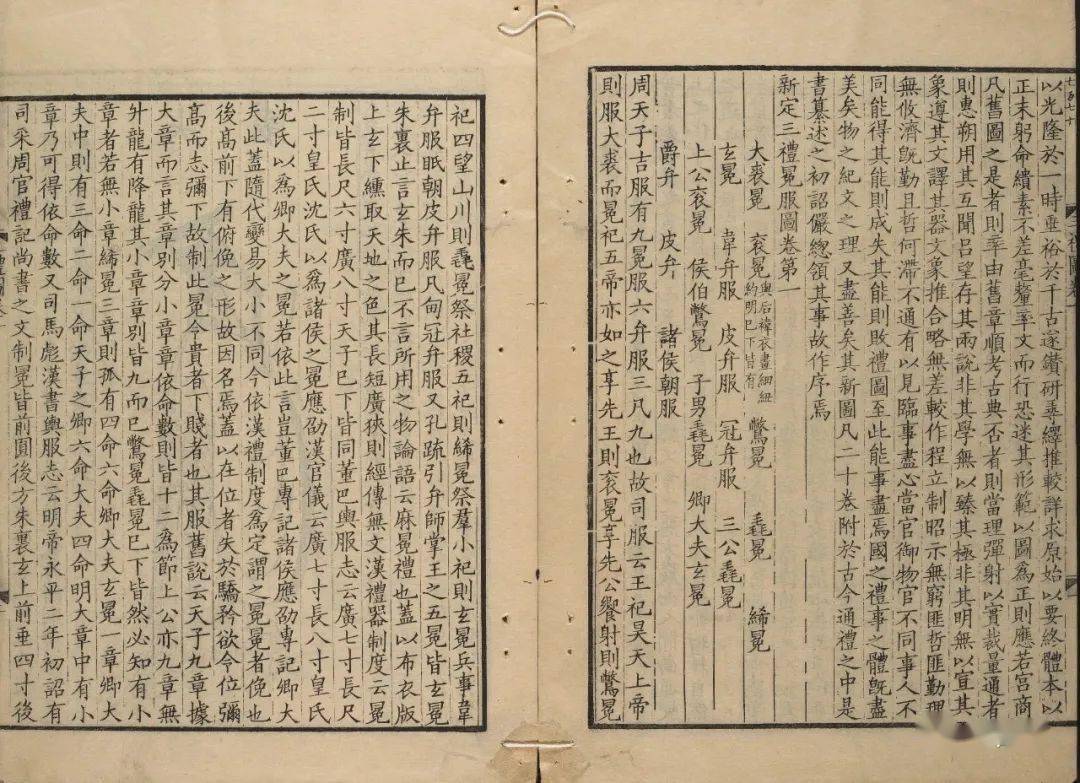 以光隆於一時垂裕於千古遂鑽研尋繹推較詳求原始以要終體本以
正末躬命繢素不差毫釐率文而行恐迷其形範以圖為正則應若宮商
凡舊圖之是者則率由舊章順考古典否者則當理彈射以實裁量通者
則惠朔用其互聞呂望存其兩說非其學無以臻其極非其明無以宜其
象遵其文譯其器文象推合略無差較作程立制昭示無窮匪哲匪勤理
無攸濟既勤且哲何滯不通有以見臨事盡心當官御物官不同事人不
同能得其能則成失其能則敗禮圖至此能事盡焉國之禮事之體既盡
美矣物之紀文之理又盡善矣其新圖凡二十卷附於古今通禮之中是
書纂述之初詔儼總領其事故作序焉
新定三禮冕服圖卷第一
大裘冕 袞冕與后褘衣畫細紐約明巳下皆有 鷩冕 毳冕 絺冕
玄冕 韋弁服 皮弁服 冠弁服 三公毳冕
上公袞冕 侯伯鷩冕 子男毳冕 卿大夫玄冕
爵弁 皮弁 諸侯朝服
周天子吉服有九冕服六弁服三凡九也故司服云王祀昊天上帝
則服大裘而冕祀五帝亦如之享先王則袞冕享先公饗射則鷩冕
祀四望山川則毳冕祭社稷五祀則絺冕祭羣小祀則玄冕兵事韋
弁服眂朝皮弁服凡甸冠弁服又孔疏引弁師掌王之五冕皆玄冕
朱裏止言玄朱而已不言所用之物論語云麻冕禮也蓋以布衣版
上玄下纁取天地之色其長短廣狹則經傳無文漢禮器制度云冕
制皆長尺六寸廣八寸天子巳下皆同董巴輿服志云廣七寸長尺
二寸皇氏沈氏以為諸侯之冕應劭漢官儀云廣七寸長八寸皇氏
沈氏以為卿大夫之冕若依此言豈董巴專記諸侯應劭專記卿大
夫此蓋隨代變易大小不同今依漢禮制度為定謂之冕冕者俛也
後高前下有俯俛之形故因名焉蓋以在位者失於驕矜欲令位彌
高而志彌下故制此冕令貴者下賤者也其服舊說云天子九章據
大章而言其章別分小章章依命數則皆十二為節上公亦九章無
升龍有降龍其小章章別皆九而巳鷩冕毳冕巳下皆然必知有小
章者若無小章絺冕三章則孤有四命六命卿大夫玄冕一章卿大
夫中則有三命二命一命天子之卿六命大夫四命明大章中有小
章乃可得依命數又司馬彪漢書輿服志云明帝永平二年初詔有
司采周官禮記尚書之文制冕皆前圓後方朱裏玄上前垂四寸後